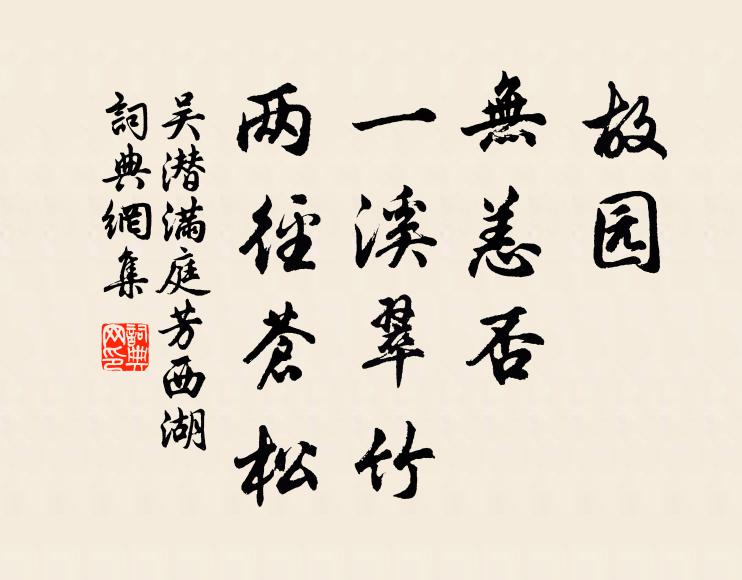 故园
無恙否
一溪翠竹
两徑蒼松
吴潜满庭芳西湖
詞典網集
詞典網印